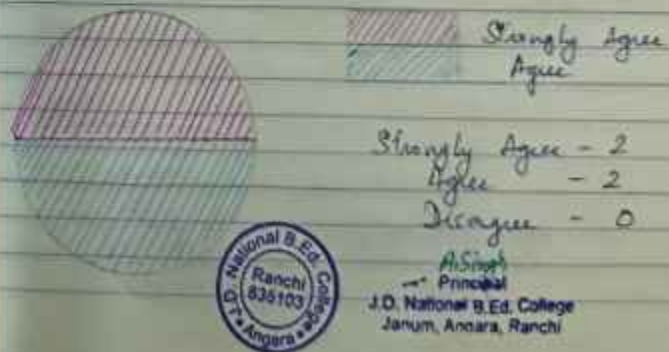 Strongly Agree
Agree
Strongly Agree - 2
Agree - 2
Disagree - 0
J.D. National B.Ed. College
Ranchi
835103
Angara
A.Singh
Principal
J.D. National B.Ed. College
Janum, Angara, Ranchi